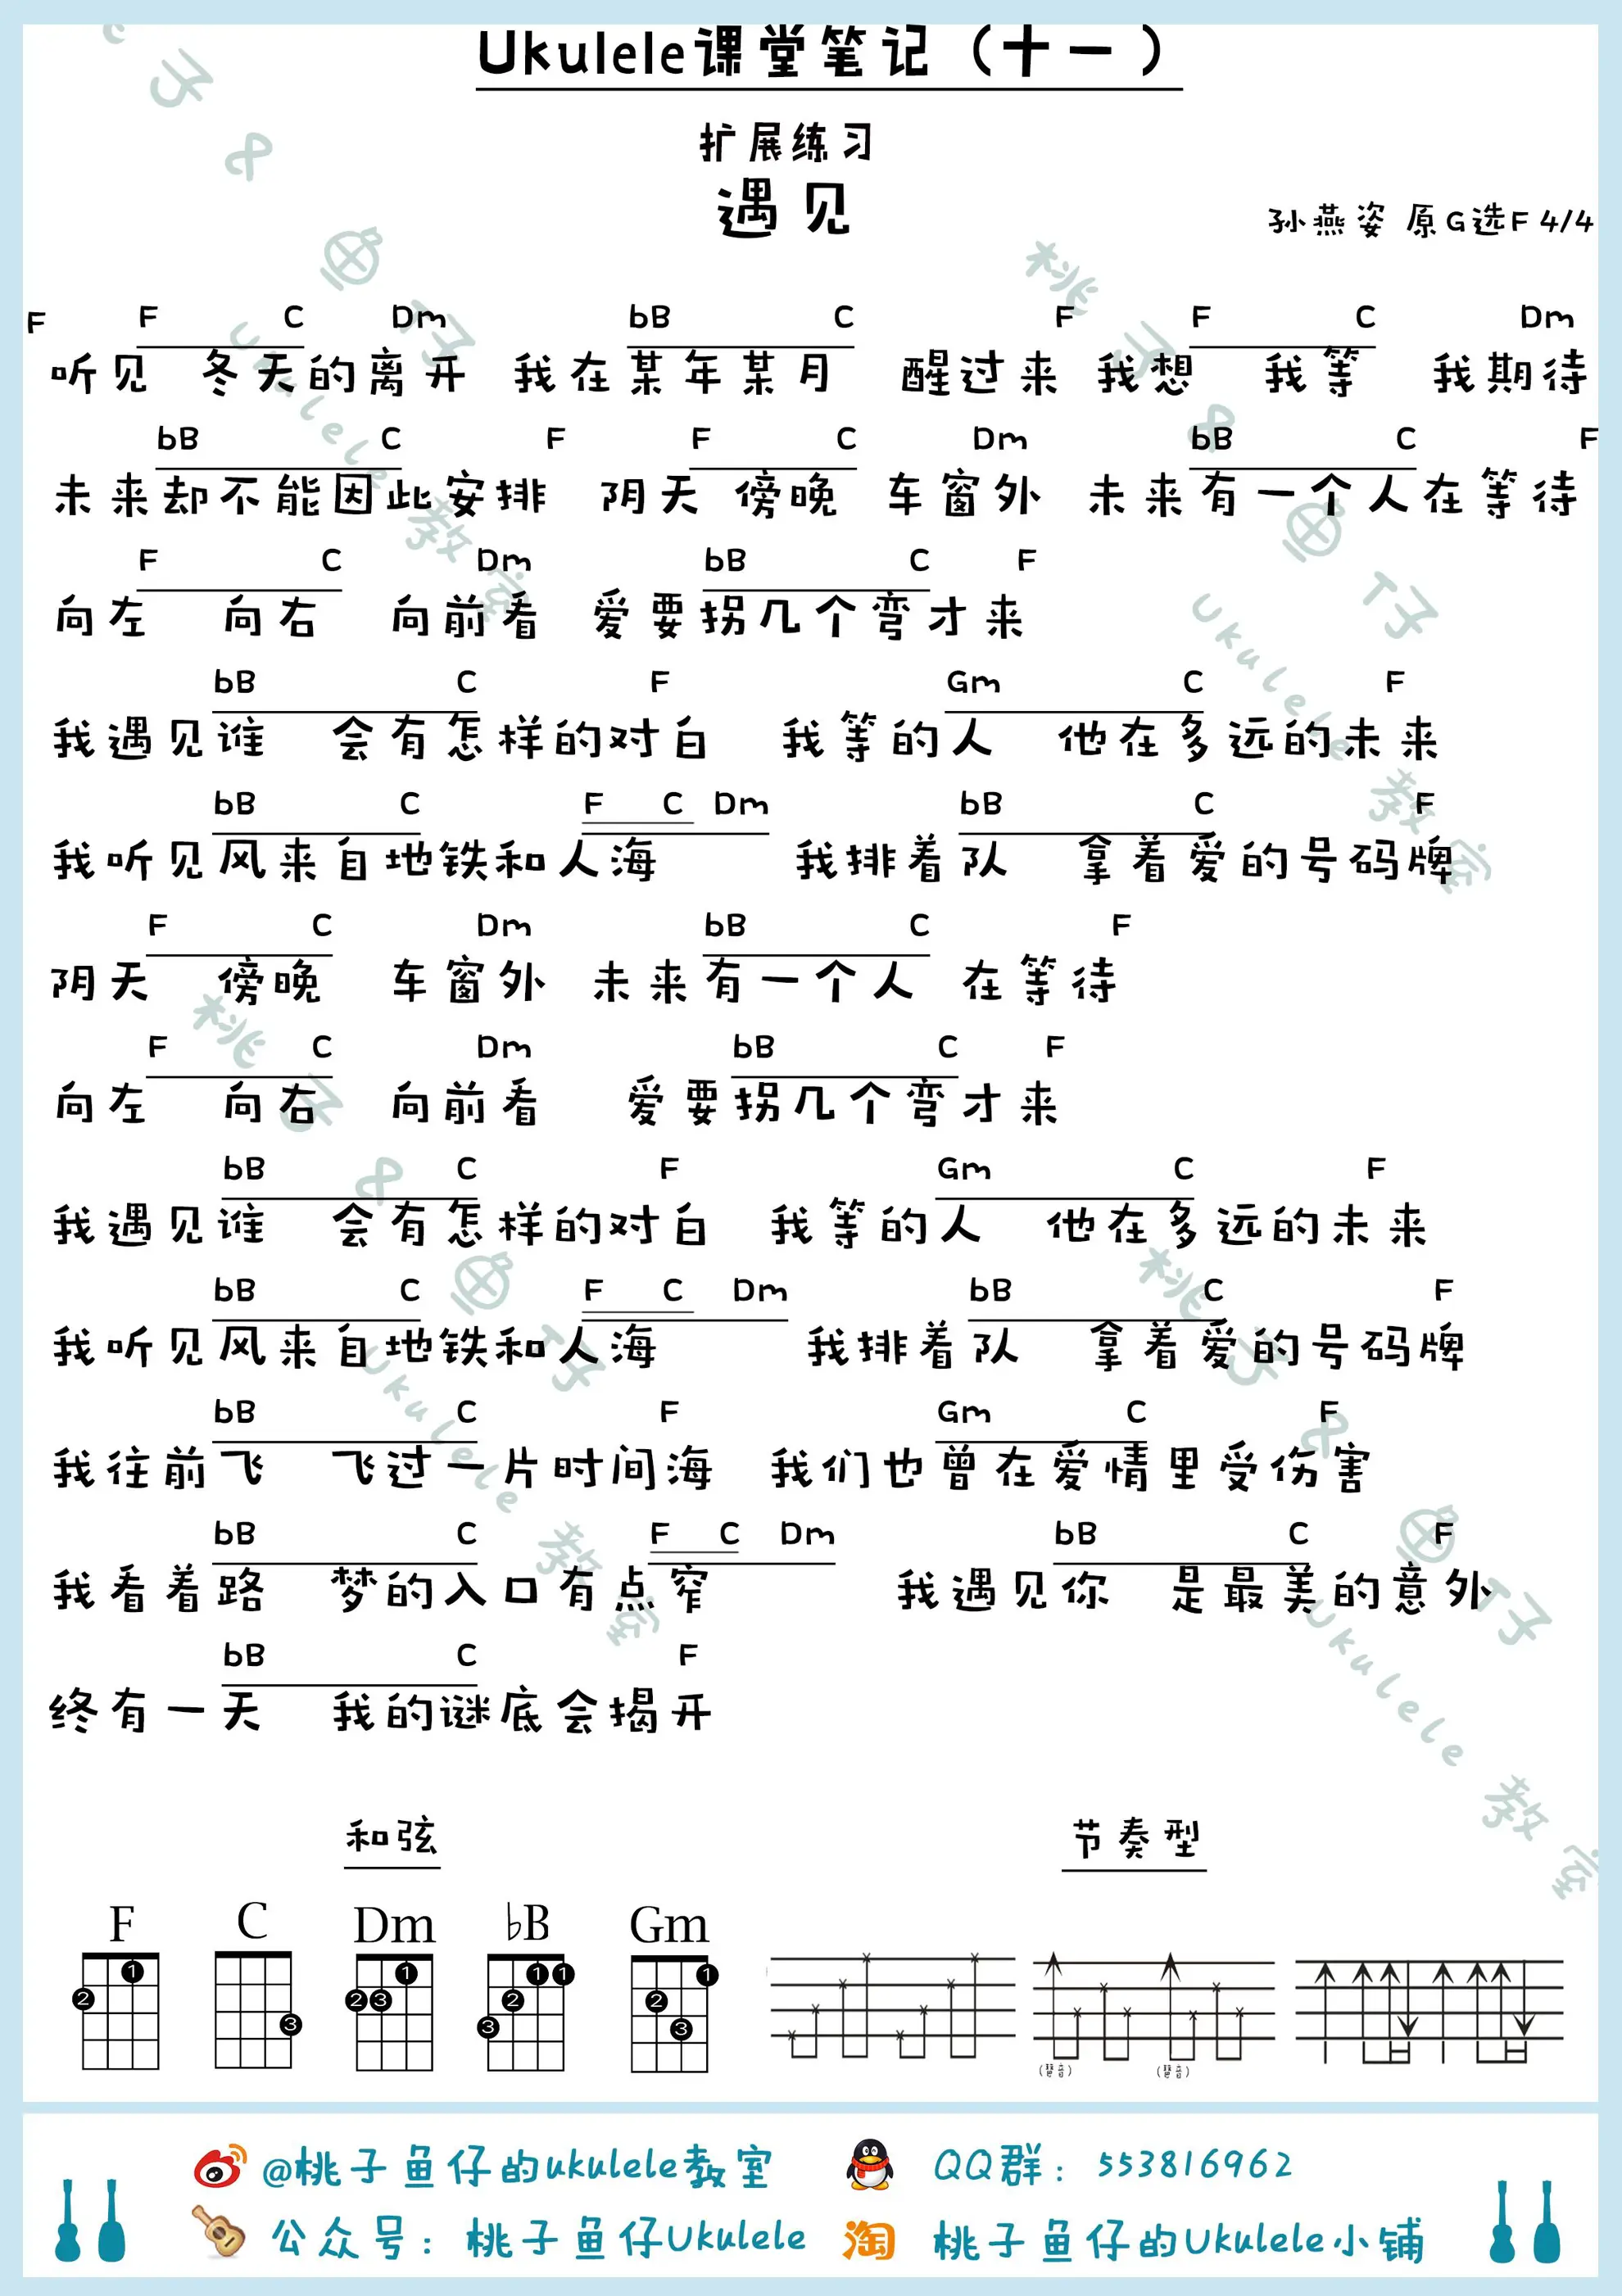 Ukulele课堂笔记（十一）
扩展练习
遇见
孙燕姿 原G选F 4/4
F F C Dm bB C F F C Dm
听见 冬天的离开 我在某年某月 醒过来 我想 我等 我期待
bB C F F C Dm bB C F
未来却不能因此安排 阴天 傍晚 车窗外 未来有一个人在等待
F C Dm bB C F
向左 向右 向前看 爱要拐几个弯才来
bB C F Gm C F
我遇见谁 会有怎样的对白 我等的人 他在多远的未来
bB C F C Dm bB C F
我听见风来自地铁和人海 我排着队 拿着爱的号码牌
F C Dm bB C F
阴天 傍晚 车窗外 未来有一个人 在等待
F C Dm bB C F
向左 向右 向前看 爱要拐几个弯才来
bB C F Gm C F
我遇见谁 会有怎样的对白 我等的人 他在多远的未来
bB C F C Dm bB C F
我听见风来自地铁和人海 我排着队 拿着爱的号码牌
bB C F Gm C F
我往前飞 飞过一片时间海 我们也曾在爱情里受伤害
bB C F C Dm bB C F
我看着路 梦的入口有点窄 我遇见你 是最美的意外
bB C F
终有一天 我的谜底会揭开
和弦 节奏型
F C Dm ♭B Gm
1 2
3
1 2 3
1 1 2 3
1 2 3
(琶音) (琶音)
@桃子鱼仔的ukulele教室 QQ群：553816962
公众号：桃子鱼仔Ukulele 淘 桃子鱼仔的Ukulele小铺
桃子&鱼仔
Ukulele教室
桃子&鱼仔
Ukulele教室
桃子&鱼仔
Ukulele教室
桃子&鱼仔
Ukulele教室